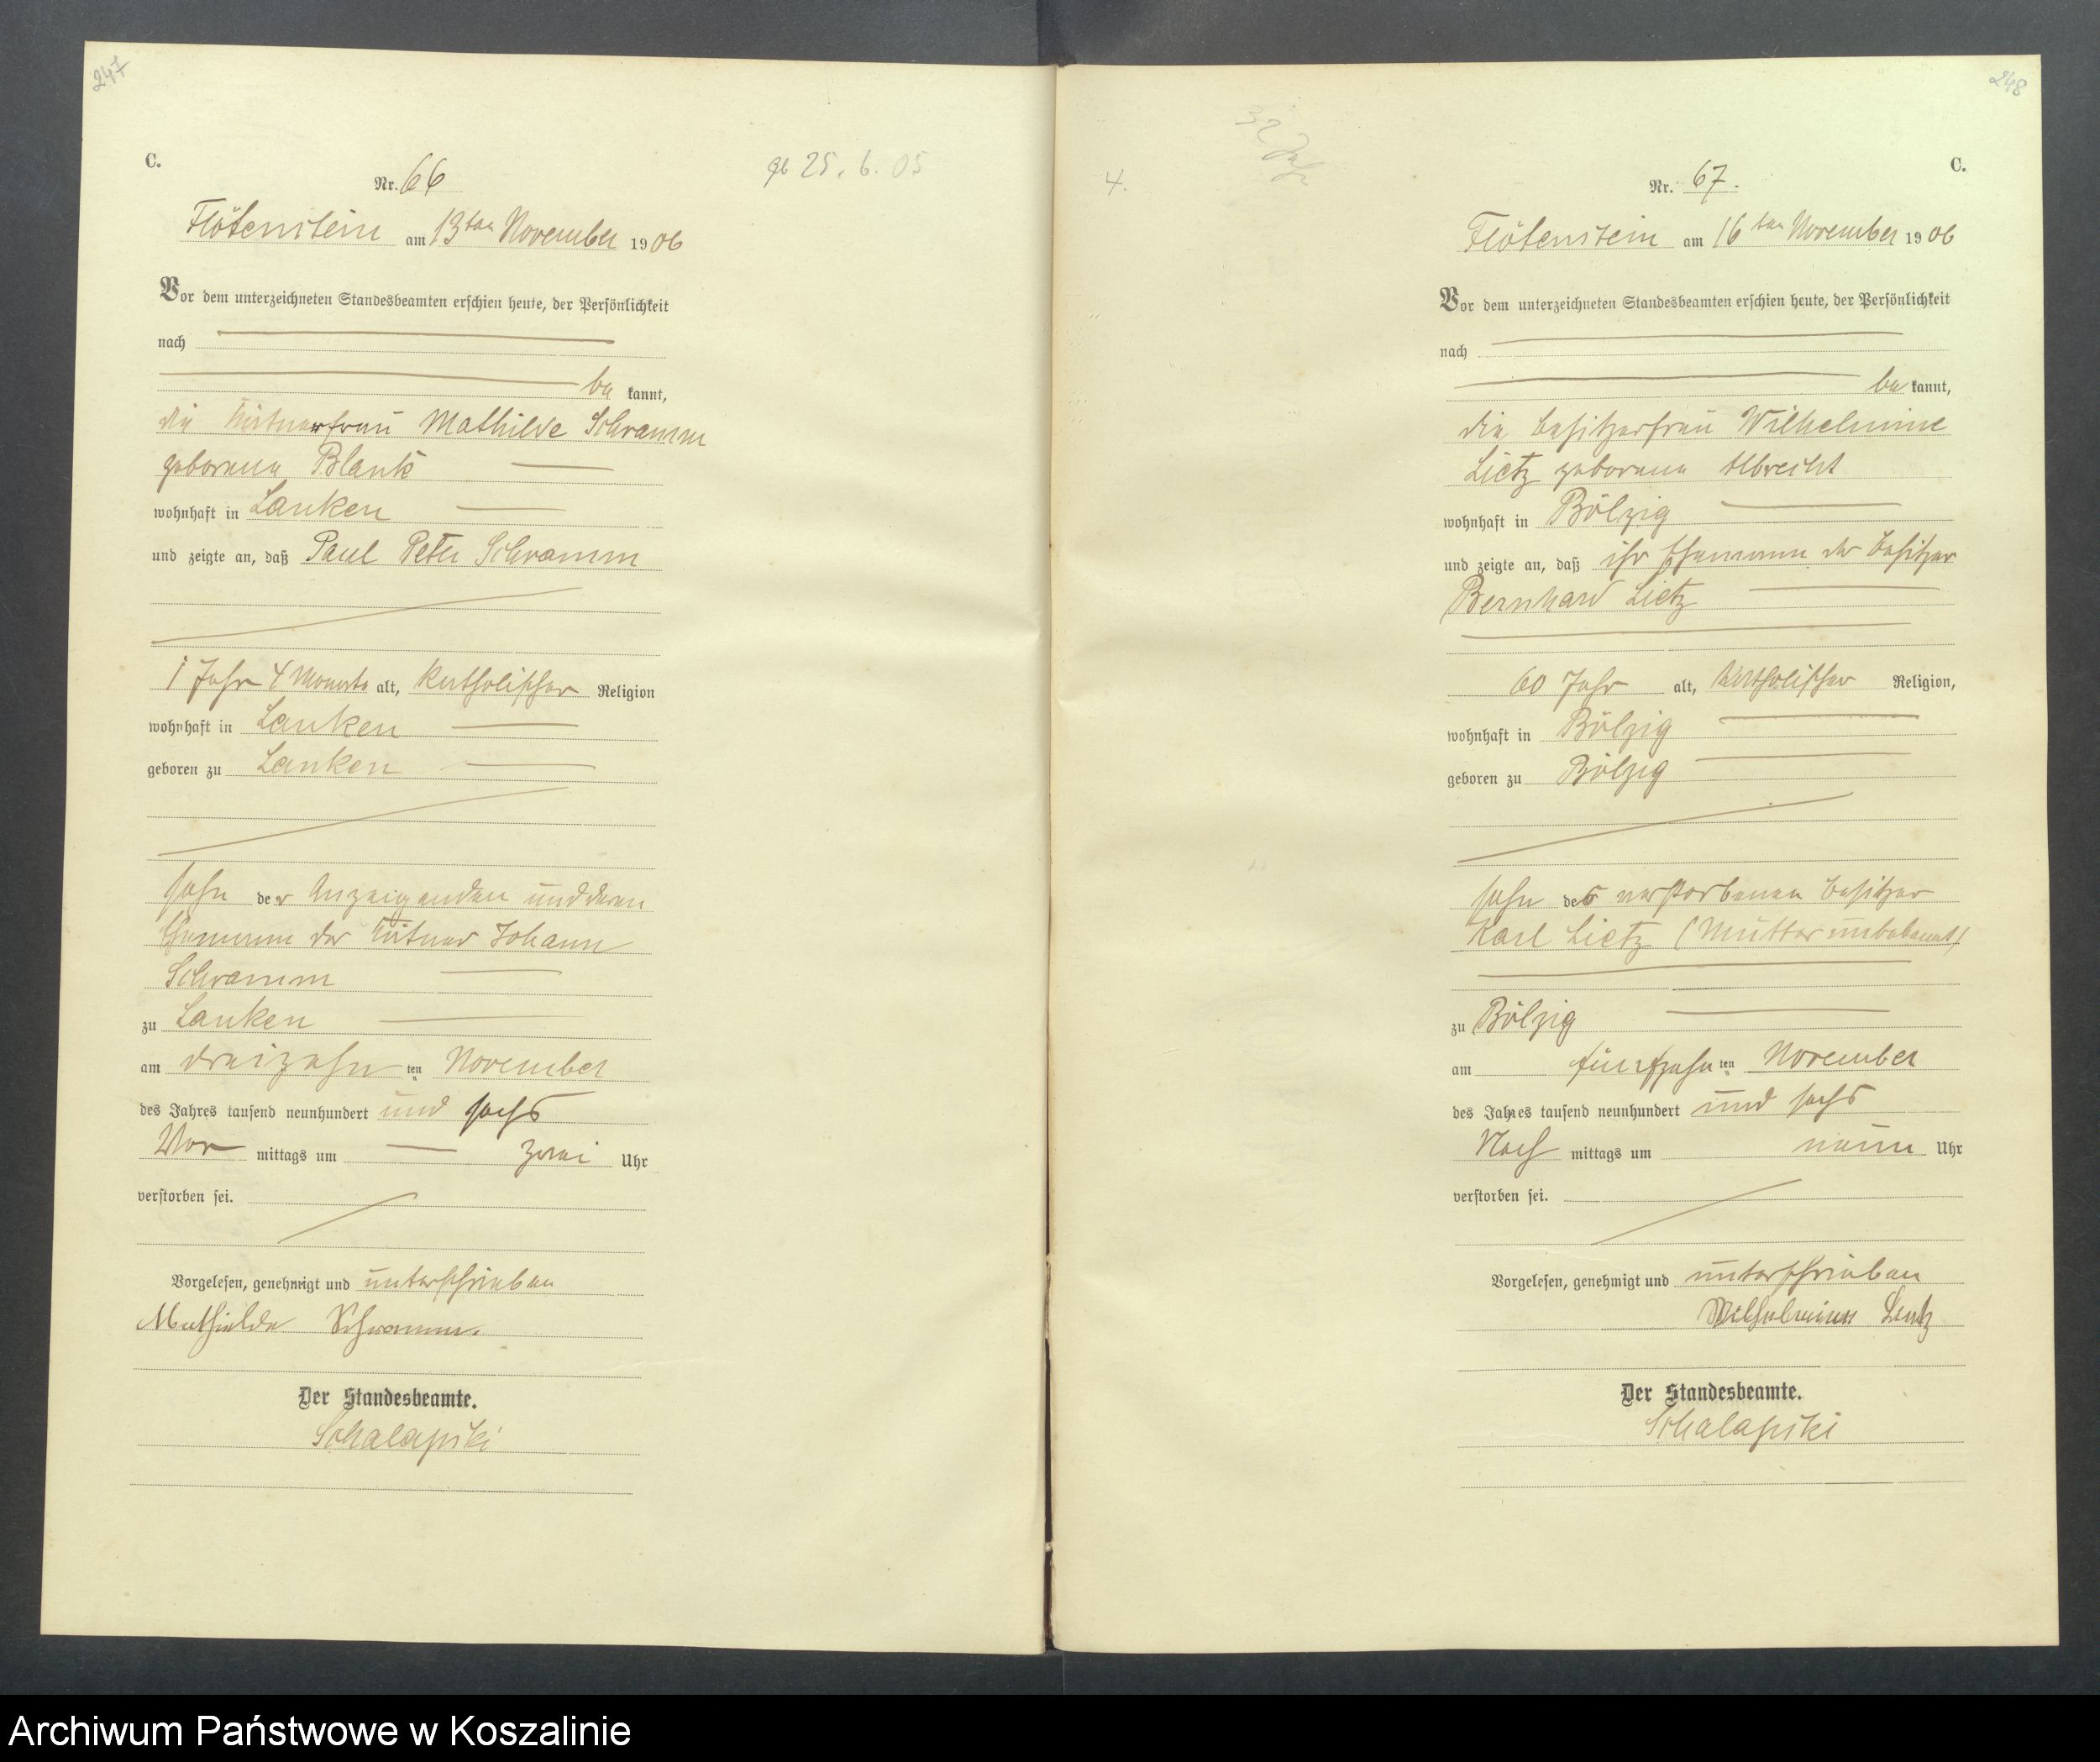 247
C.
Nr. 66
gb 25. 6. 05
Flötenstein am 13ten November 1906
Vor dem unterzeichneten Standesbeamten erschien heute, der Persönlichkeit
nach
be kannt,
die Mathilde Schramm
geborene Blank
wohnhaft in Lanken
und zeigte an, daß Paul Peter Schramm
1 Jahr 4 Monate alt, katholischer Religion
wohnhaft in Lanken
geboren zu Lanken
Sohn der Anzeigenden und deren
Ehemann der Johann
Schramm
zu Lanken
am dreizehn ten November
des Jahres tausend neunhundert und sechs
Vor mittags um zwei Uhr
verstorben sei.
Vorgelesen, genehmigt und unterschrieben
Mathilde Schramm.
Der Standesbeamte.
Schalapski
248
C.
4.
32 Jahr
Nr. 67.
Flötenstein am 16ten November 1906
Vor dem unterzeichneten Standesbeamten erschien heute, der Persönlichkeit
nach
be kannt,
die Besitzerfrau Wilhelmine
Lietz geborene Albrecht
wohnhaft in Bölzig
und zeigte an, daß ihr Ehemann der Besitzer
Bernhard Lietz
60 Jahr alt, katholischer Religion,
wohnhaft in Bölzig
geboren zu Bölzig
Sohn des verstorbenen Besitzer
Karl Lietz (Mutter unbekannt)
zu Bölzig
am fünfzehn ten November
des Jahres tausend neunhundert und sechs
Nach mittags um neun Uhr
verstorben sei.
Vorgelesen, genehmigt und unterschrieben
Wilhelmine Lietz
Der Standesbeamte.
Schalapski
Archiwum Państwowe w Koszalinie